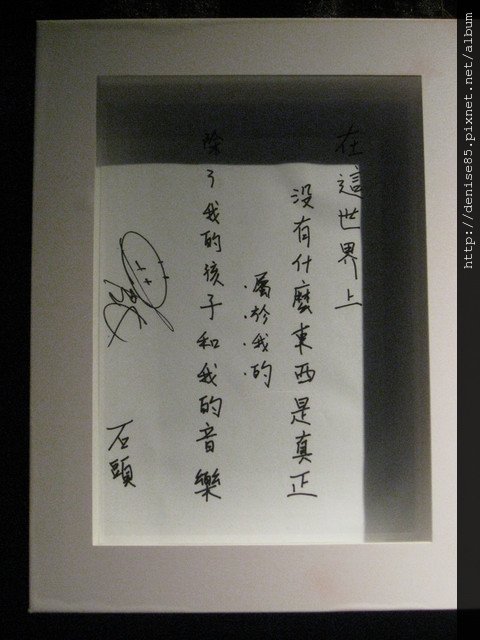 在這世界上
沒有什麼東西是真正
屬於我的
除了我的孩子和我的音樂
石頭
http://denise85.pixnet.net/album